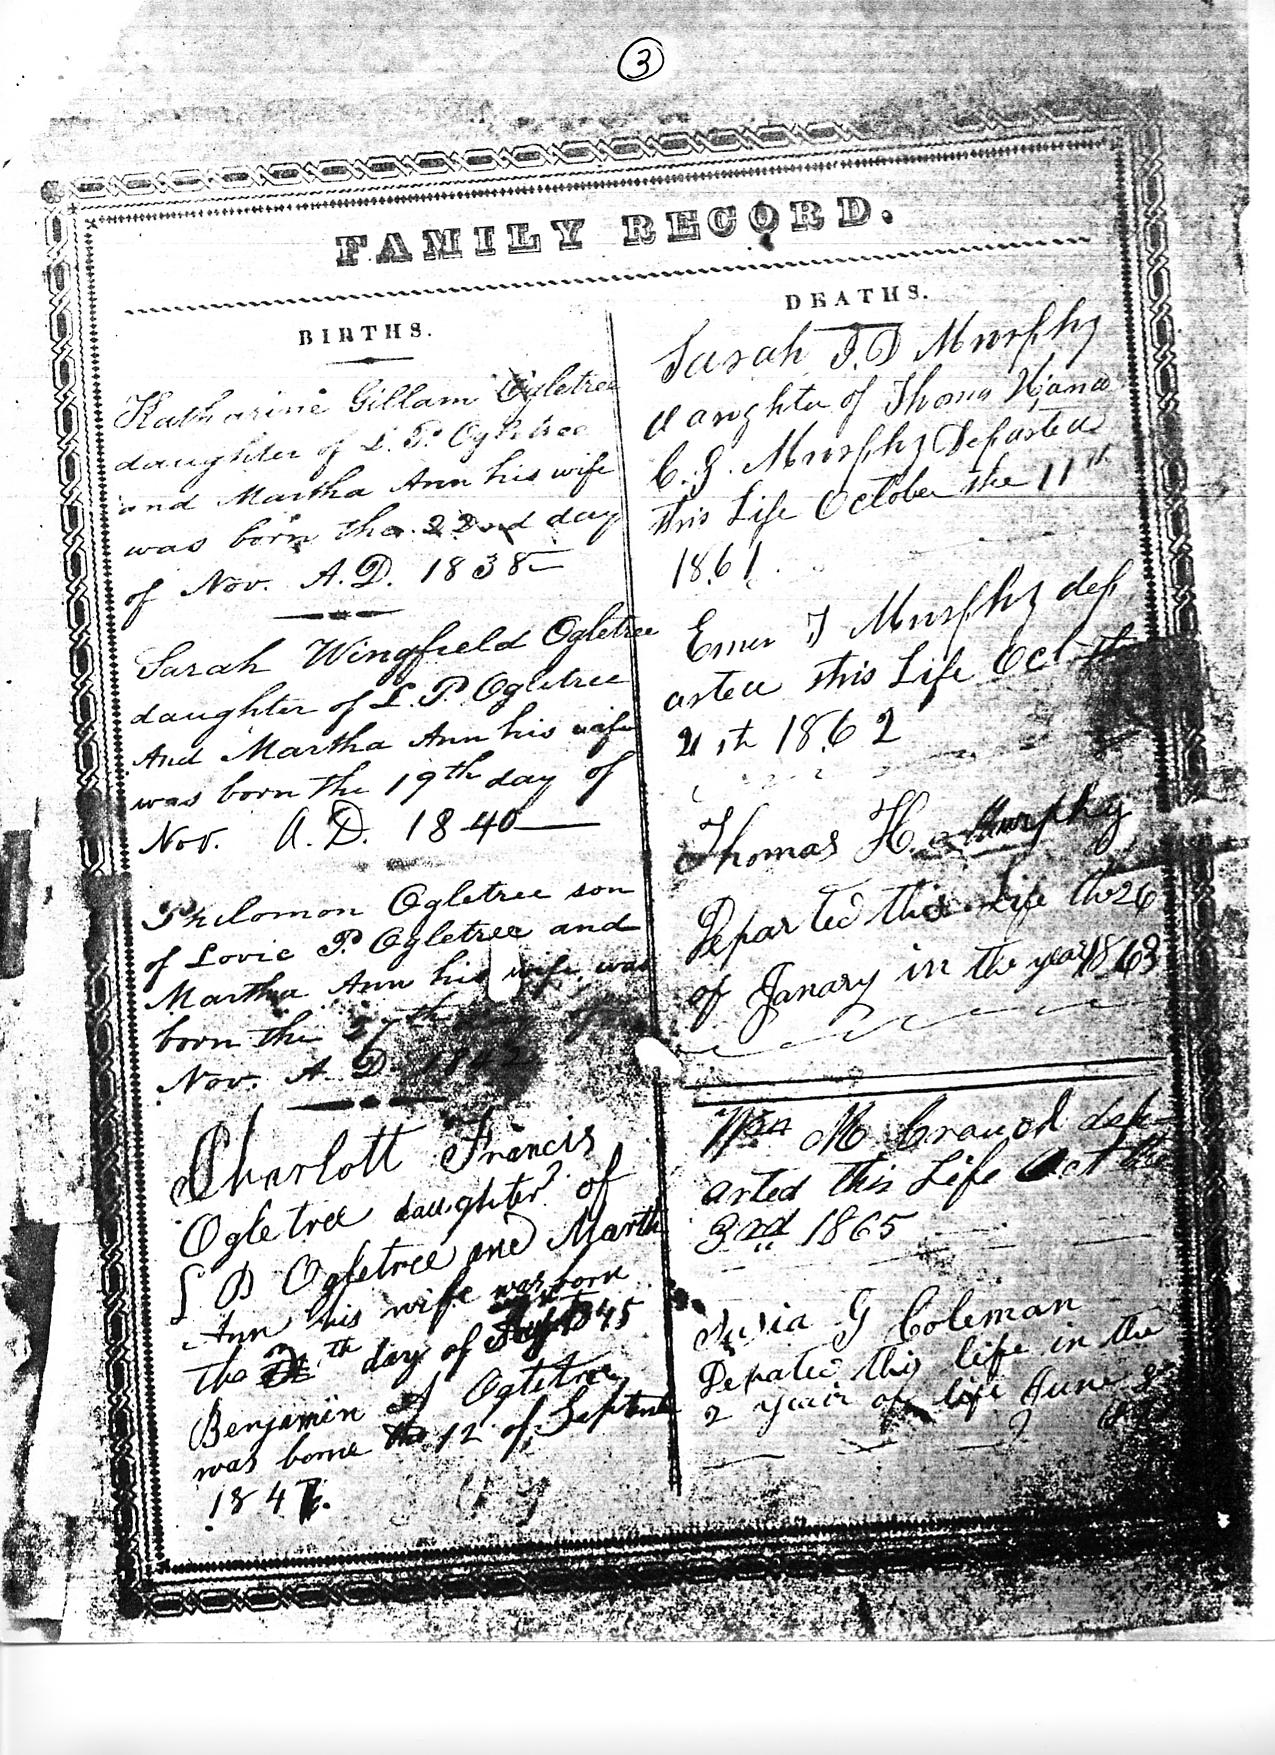 3
FAMILY RECORD.
BIRTHS.
Katharine Gillam Ogletree
daughter of L. P. Ogletree
and Martha Ann his wife
was born the 22nd day
of Nov. A.D. 1838
Sarah Wingfield Ogletree
daughter of L. P. Ogletree
And Martha Ann his wife
was born the 19th day of
Nov. A.D. 1840
Philomon Ogletree son
of Lovic P. Ogletree and
Martha Ann his wife was
born the day of
Nov. A.D. 1842
Charlott Francis
Ogletree daughter of
L P Ogletree and Marth
Ann his wife was born
the th day of 1845
Benjamin Ogletree
was borne the 12 of Septem
184
DEATHS.
Sarah Murphy
daughter of Thomas H and
C. G. Murphy Departed
this Life October the 11th
1861
Emer Murphy dep
arted this Life Oct the
th 1862
Thomas H. Murphy
Departed this life the 26
of Janary in the year 1863
Wm M Crouch dep-
arted this Life Oct the
3rd 1865
G Coleman
Depated this life in the
2 year of life June